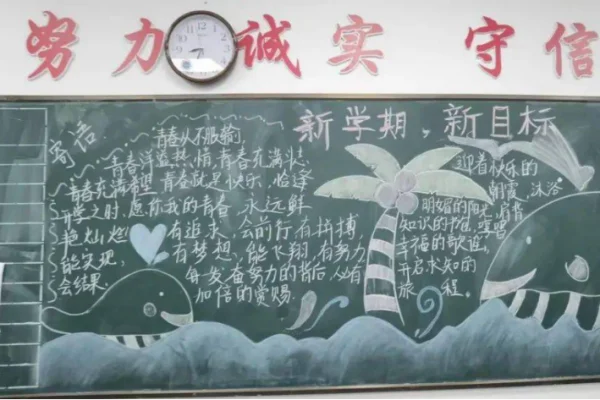 努力 诚实 守信
新学期，新目标
寄语
青春从不服输
青春洋溢热情，青春充满斗志
青春充满希望 青春就是快乐，临泽
开学之时，愿你我的青春永远鲜
艳灿烂 有追求，会前行 有拼搏，
能实现， 有梦想，能飞翔，有努力
会结果。 每一发奋努力的背后，必有
加倍的赏赐。
迎着快乐的
朝霞，沐浴
明媚的阳光，背着
知识的书包，哼唱
幸福的歌谣，
开启求知的
旅程。